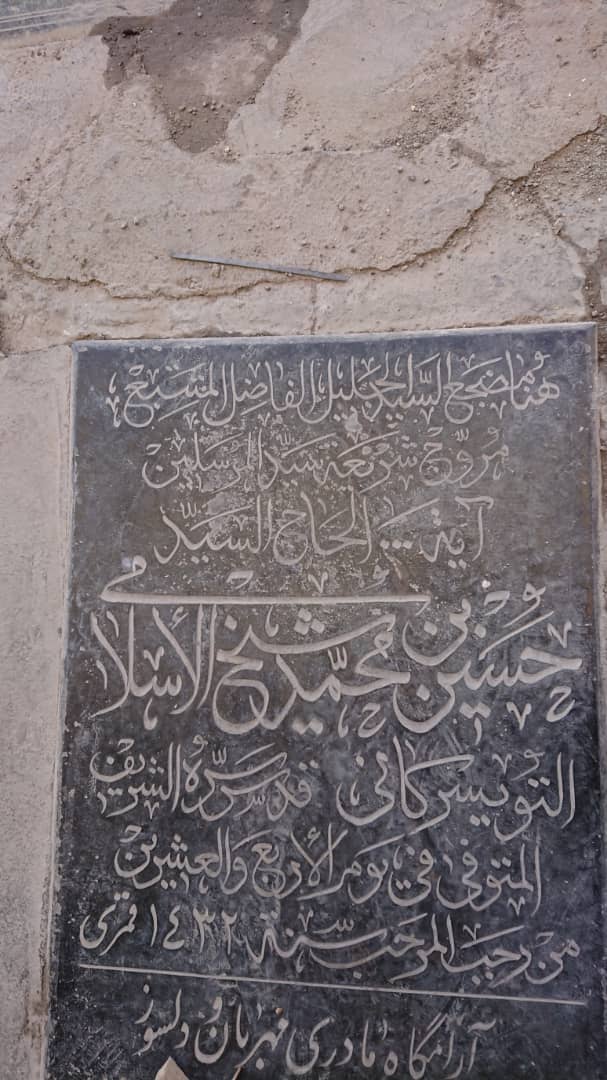 هُنا مضجع السَّید الجلیل الفاضل المتتبّع
مُروّج شریعة سیّد المرسلین
آیة ... الحاج السیّد
حُسین بن محمّد شیخ الإسلامی
التُویسرکانی قدّس سرّه الشریف
المتوفی فی یوم الأربع والعشرین
من رجب المرجّب سنة ١٤٣٢ قمری
آرامگاه مادری مهربان و دلسوز